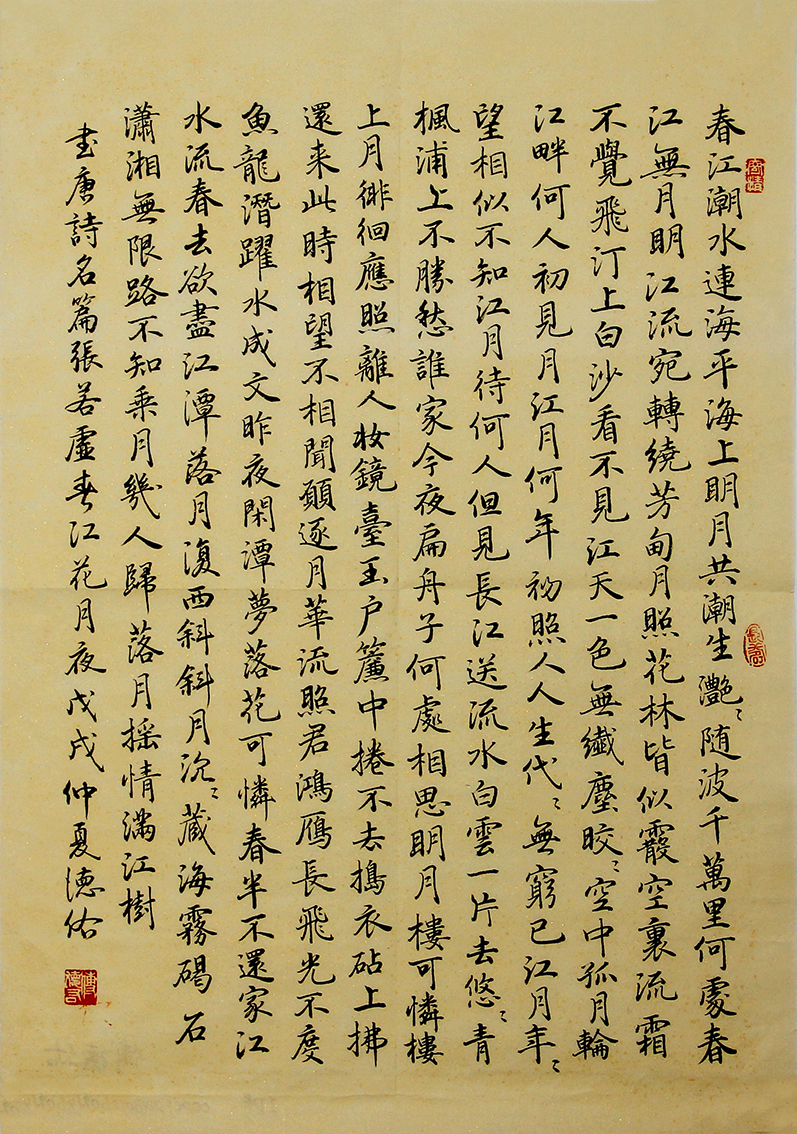 春江潮水連海平海上明月共潮生灧〻随波千萬里何處春
江無月明江流宛轉繞芳甸月照花林皆似霰空裏流霜
不覺飛汀上白沙看不見江天一色無纖塵皎〻空中孤月輪
江畔何人初見月江月何年初照人人生代〻無窮已江月年〻
望相似不知江月待何人但見長江送流水白雲一片去悠〻青
楓浦上不勝愁誰家今夜扁舟子何處相思明月樓可憐樓
上月徘徊應照離人妝鏡臺玉户簾中捲不去搗衣砧上拂
還来此時相望不相聞願逐月華流照君鴻雁長飛光不度
魚龍潛躍水成文昨夜閑潭夢落花可憐春半不還家江
水流春去欲盡江潭落月復西斜斜月沉〻藏海霧碣石
瀟湘無限路不知乘月幾人歸落月摇情滿江樹
书唐詩名篇張若虚春江花月夜戊戌仲夏德佑